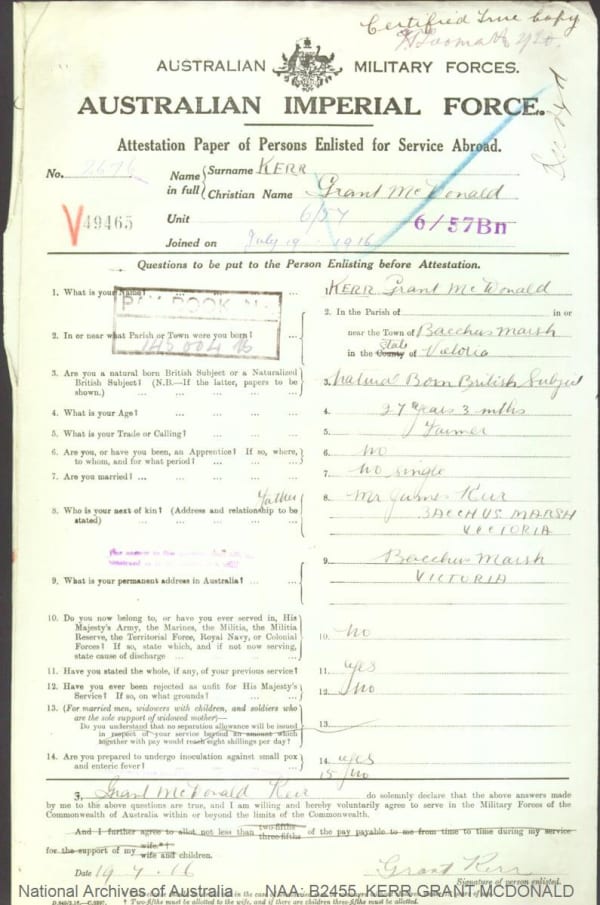 Certified True Copy
AUSTRALIAN MILITARY FORCES.
AUSTRALIAN IMPERIAL FORCE.
Attestation Paper of Persons Enlisted for Service Abroad.
No. 2676
Name in full { Surname KERR
Christian Name Grant McDonald
V49465
Unit 6/57 6/57Bn
Joined on July 19 . 1916
Questions to be put to the Person Enlisting before Attestation.
1. What is your Name? ... ... 1. KERR Grant McDonald
PAY BOOK No.
2. In or near what Parish or Town were you born? ... 2. In the Parish of in or
near the Town of Bacchus Marsh
in the County State of Victoria
3. Are you a natural born British Subject or a Naturalized
British Subject? (N.B.—If the latter, papers to be
shown.) ... ... ... 3. Natural Born British Subject
4. What is your Age? ... ... ... 4. 27 years 3 mths
5. What is your Trade or Calling? ... ... ... 5. Farmer
6. Are you, or have you been, an Apprentice? If so, where,
to whom, and for what period? ... ... ... 6. no
7. Are you married? ... ... ... ... 7. no single
Father
8. Who is your next of kin? (Address and relationship to be
stated) ... ... ... ... 8. Mr James Kerr
BACCHUS MARSH
VICTORIA
9. What is your permanent address in Australia? ... ... 9. Bacchus Marsh
VICTORIA
10. Do you now belong to, or have you ever served in, His
Majesty's Army, the Marines, the Militia, the Militia
Reserve, the Territorial Force, Royal Navy, or Colonial
Forces? If so, state which, and if not now serving,
state cause of discharge ... ... ... 10. no
11. Have you stated the whole, if any, of your previous service? 11. yes
12. Have you ever been rejected as unfit for His Majesty's
Service? If so, on what grounds? ... ... 12. no
13. (For married men, widowers with children, and soldiers who
are the sole support of widowed mother)—
Do you understand that no separation allowance will be issued
in respect of your service beyond an amount which
together with pay would reach eight shillings per day? 13.
14. Are you prepared to undergo inoculation against small pox
and enteric fever? ... ... ... 14. yes
15 no
I, Grant McDonald Kerr do solemnly declare that the above answers made
by me to the above questions are true, and I am willing and hereby voluntarily agree to serve in the Military Forces of the
Commonwealth of Australia within or beyond the limits of the Commonwealth.
And I further agree to allot not less than two-fifths three-fifths of the pay payable to me from time to time during my service
for the support of my wife.*† wife and children.
Date 19.7.16 Grant Kerr
Signature of person enlisted.
National Archives of Australia NAA: B2455, KERR GRANT MCDONALD
† Two-fifths must be allotted to the wife, and if there are children three-fifths must be allotted.